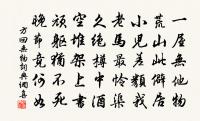 一屋無他物
荒山此僻居
小兒差類我
老馬最憐渠
久絶樽中酒
空堆架上書
頑軀猶不死
晚節竟何如
方回無物詞典網書